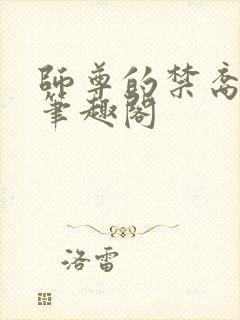 師尊的禁脔
筆趣閣
洛雷